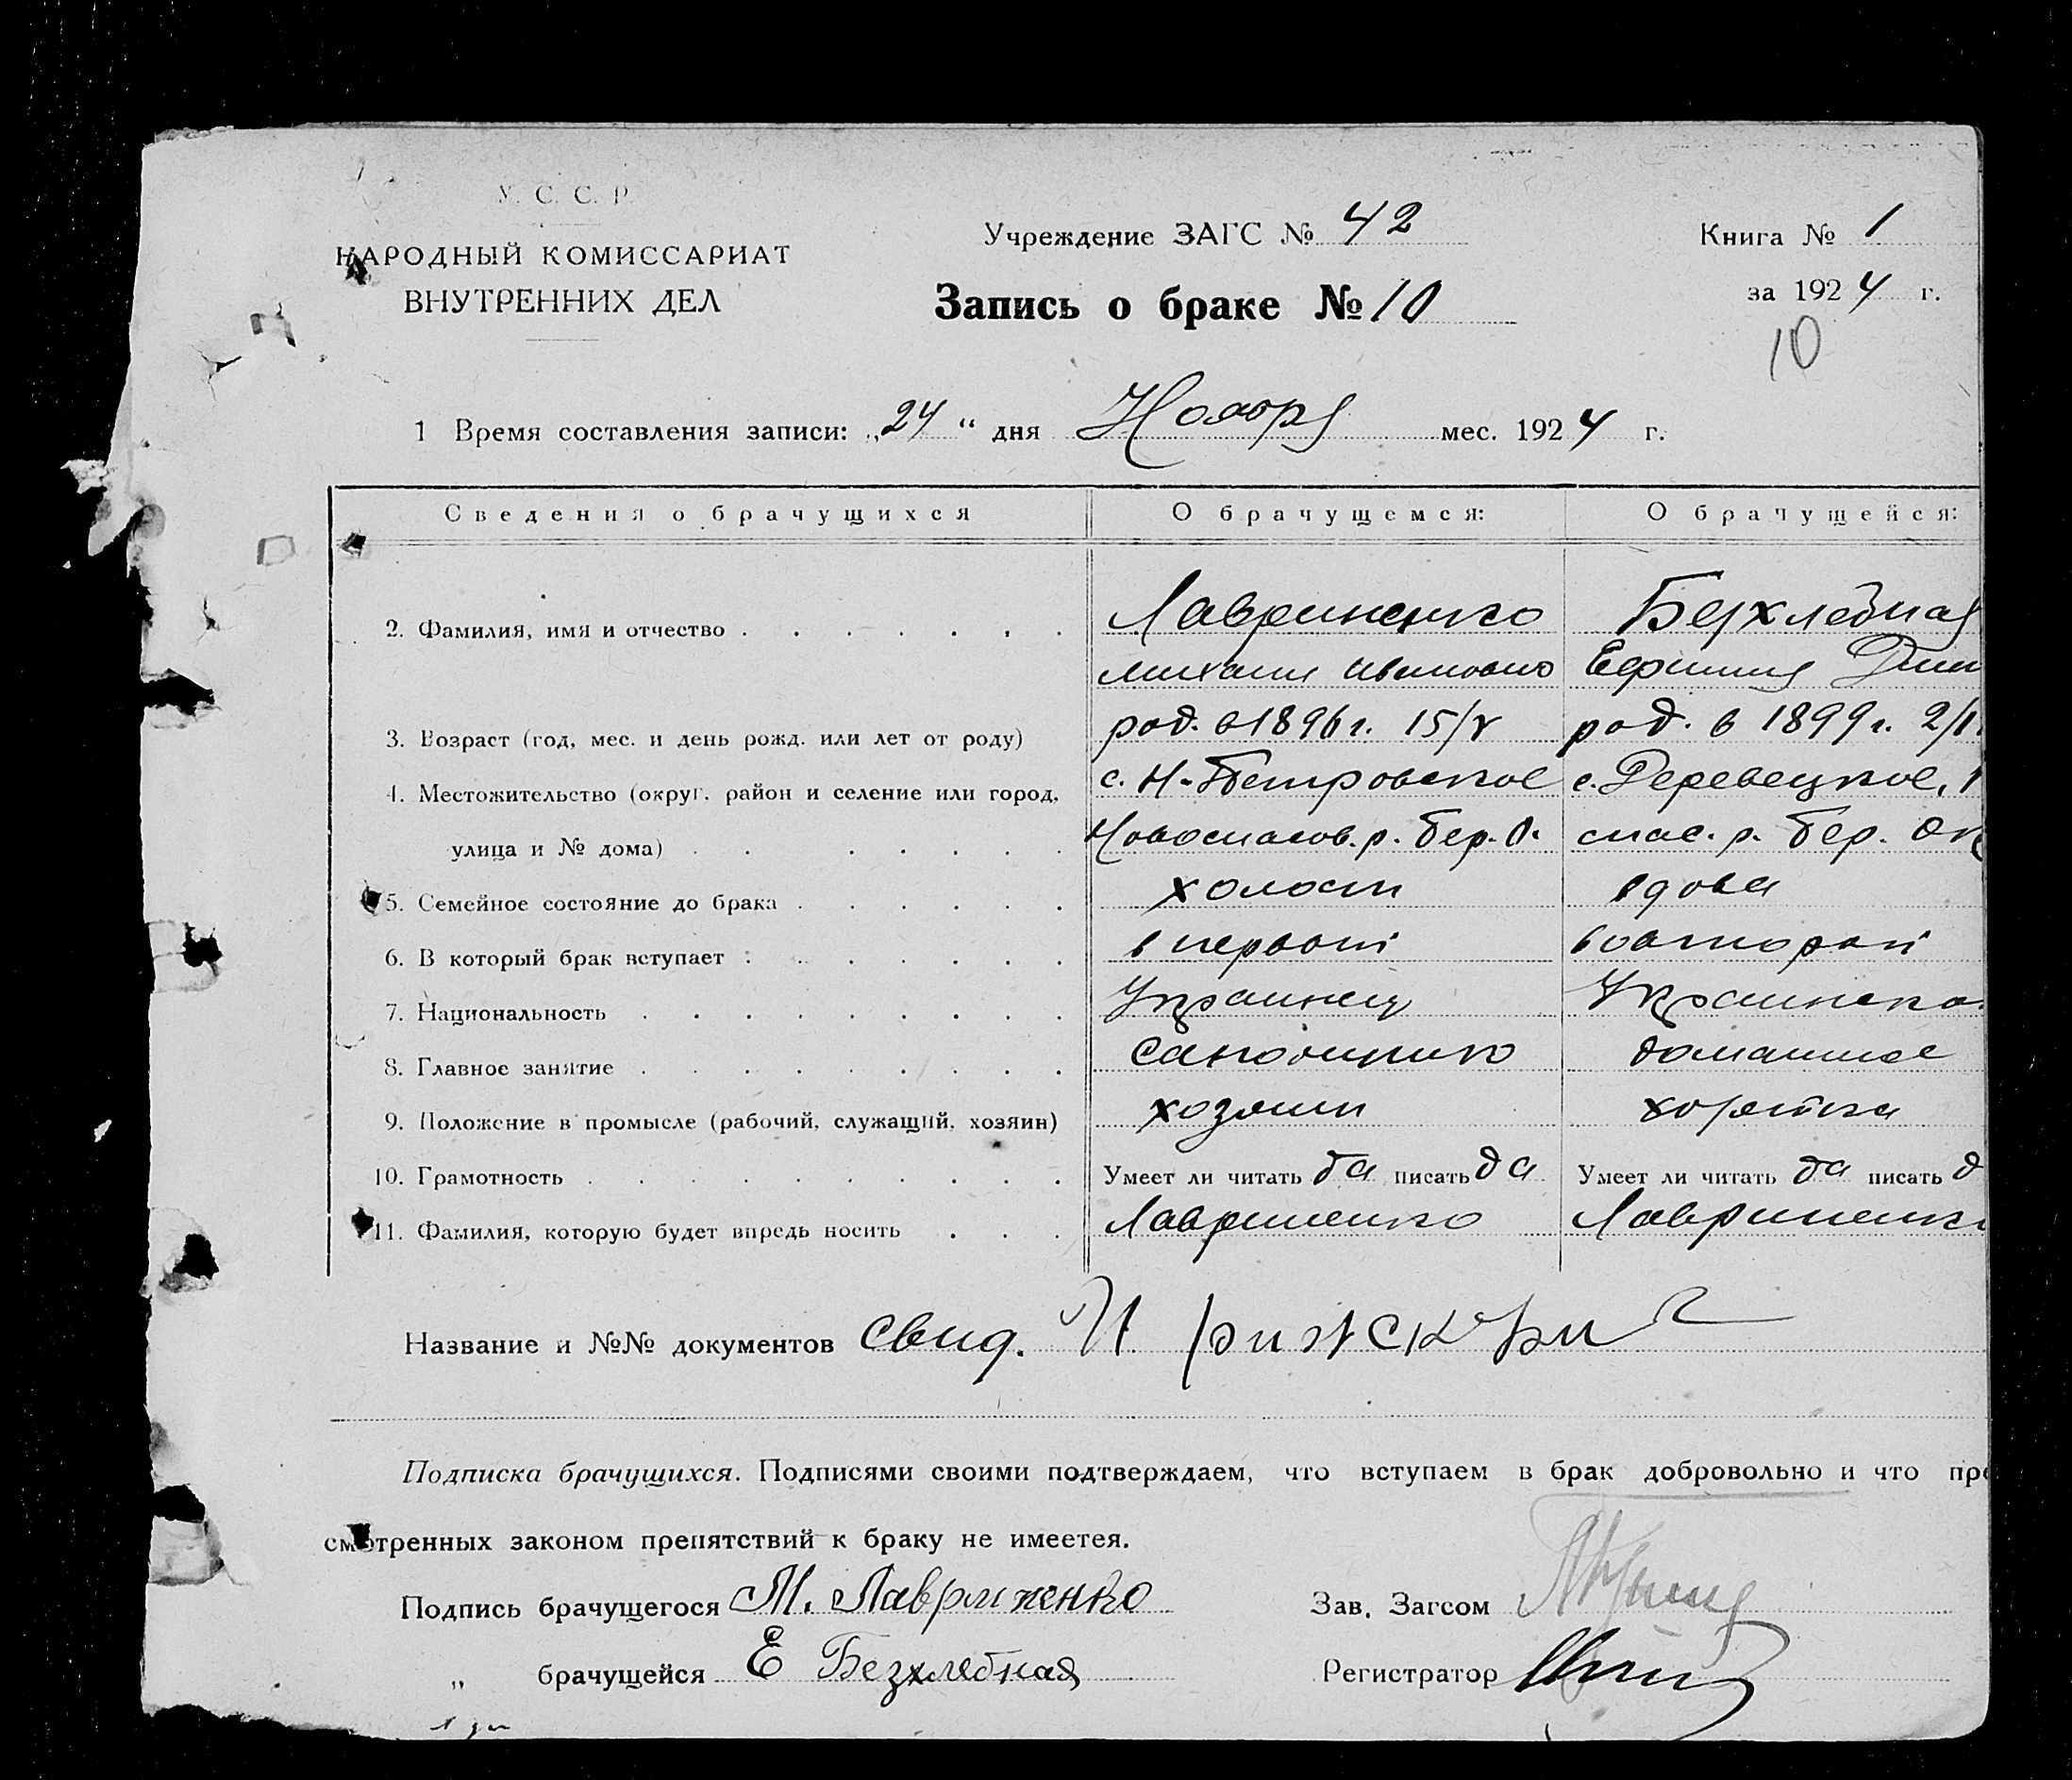 У. С. С. Р.
НАРОДНЫЙ КОМИССАРИАТ
ВНУТРЕННИХ ДЕЛ
Учреждение ЗАГС № 42
Книга № 1
Запись о браке № 10
за 1924 г.
10
1 Время составления записи: „24“ дня Ноября мес. 1924 г.
Сведения о брачущихся О брачущемся: О брачущейся:
2. Фамилия, имя и отчество Лавриненко Безхлебная
Михаил Иванович Ефимия Дми
3. Возраст (год, мес. и день рожд. или лет от роду) род. в 1896 г. 15/V род. в 1899 г.
4. Местожительство (округ. район и селение или город, с. Н-Петровское с. Деревецкое,
улица и № дома) Новоспасов. р. Бер. О. спас. р. Бер. Ок
5. Семейное состояние до брака холост вдова
6. В который брак вступает в первый во второй
7. Национальность Украинец Украинка
8. Главное занятие Сапожник домашнее
9. Положение в промысле (рабочий, служащий, хозяин) хозяин хозяйка
10. Грамотность Умеет ли читать да писать да Умеет ли читать да писать д
11. Фамилия, которую будет впредь носить Лавриненко Лавриненк
Название и №№ документов свид.
Подписка брачущихся. Подписями своими подтверждаем, что вступаем в брак добровольно и что пре
смотренных законом препятствий к браку не имеетея.
Подпись брачущегося М. Лавриненко Зав. Загсом
„ брачущейся Е Безхлябная Регистратор